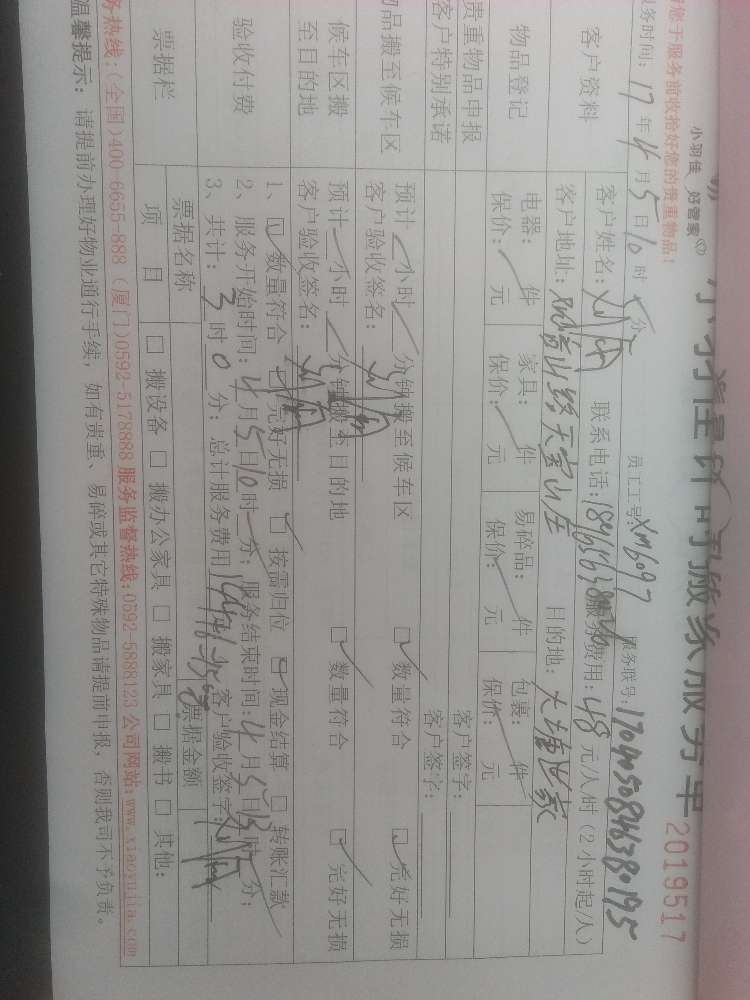 小羽佳 好管家
搬家服务单
2019517
您于服务前收拾好您的贵重物品!
员工工号: XM6097 服务联号:
服务时间: 17 年 4 月 5 日 10 时 分
客户资料
客户姓名: 联系电话: 服务费用: 48 元/人/时 (2小时起/人)
客户地址: 目的地:
物品登记
电器: 件 家具: 件 易碎品: 件 包裹: 件
保价: 元 保价: 元 保价: 元 保价: 元
贵重物品申报 客户签字:
客户特别承诺 客户签字:
物品搬至候车区
预计 小时 分钟搬至候车区 ☑ 数量符合 ☑ 完好无损
客户验收签名:
候车区搬至目的地
预计 小时 分钟搬至目的地 ☑ 数量符合 ☑ 完好无损
客户验收签名:
验收付费
1、☑ 数量符合 ☑ 完好无损 ☑ 按需归位 ☑ 现金结算 □ 转账汇款
2、服务开始时间: 4 月 5 日 10 时 分; 服务结束时间: 4 月 5 日 13 时 分;
3、共计: 3 时 0 分; 总计服务费用 客户验收签字:
票据栏
票据名称 票据金额
项 目 □ 搬设备 □ 搬办公家具 □ 搬家具 □ 搬书 □ 其他:
务热线: (全国)400-6655-888 (厦门)0592-5178888 服务监督热线: 0592-5888123 公司网站: www.xiaoyujia.com
温馨提示: 请提前办理好物业通行手续, 如有贵重、易碎或其它特殊物品请提前申报, 否则我司不予负责。